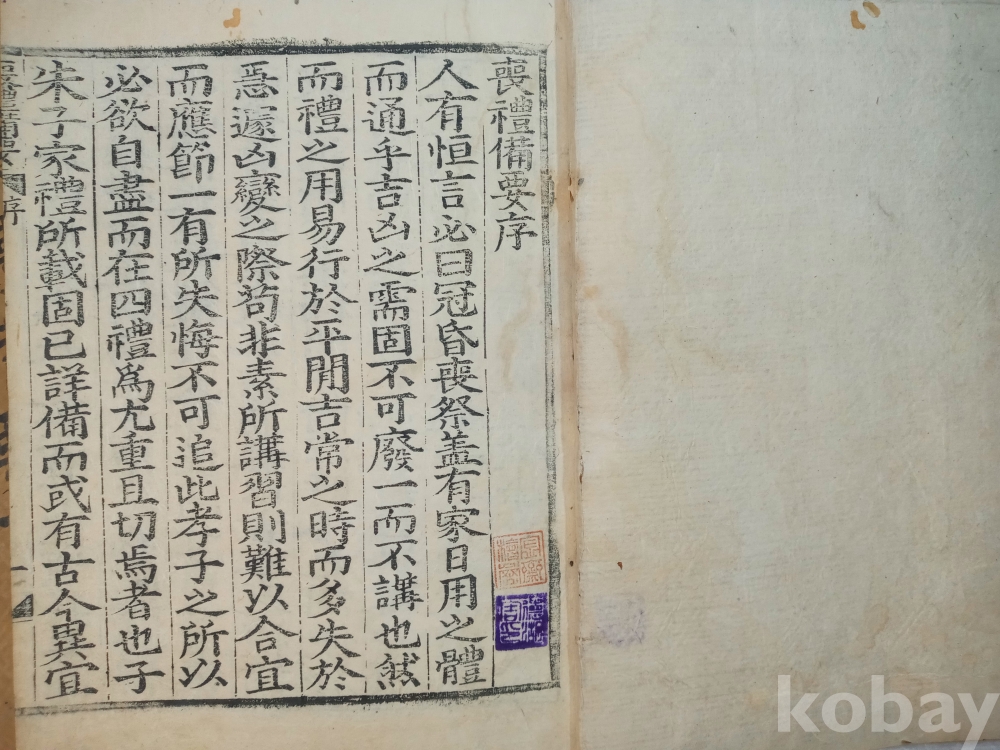 喪禮備要序
人有恒言必曰冠昏喪祭盖有家日用之體
而通乎吉凶之需固不可廢一而不講也然
而禮之用易行於平閒吉常之時而多失於
急遽凶變之際苟非素所講習則難以合宜
而應節一有所失悔不可追此孝子之所以
必欲自盡而在四禮爲尤重且切焉者也子
朱子家禮所載固已詳備而或有古今異宜
喪禮備要 序
一
kobay